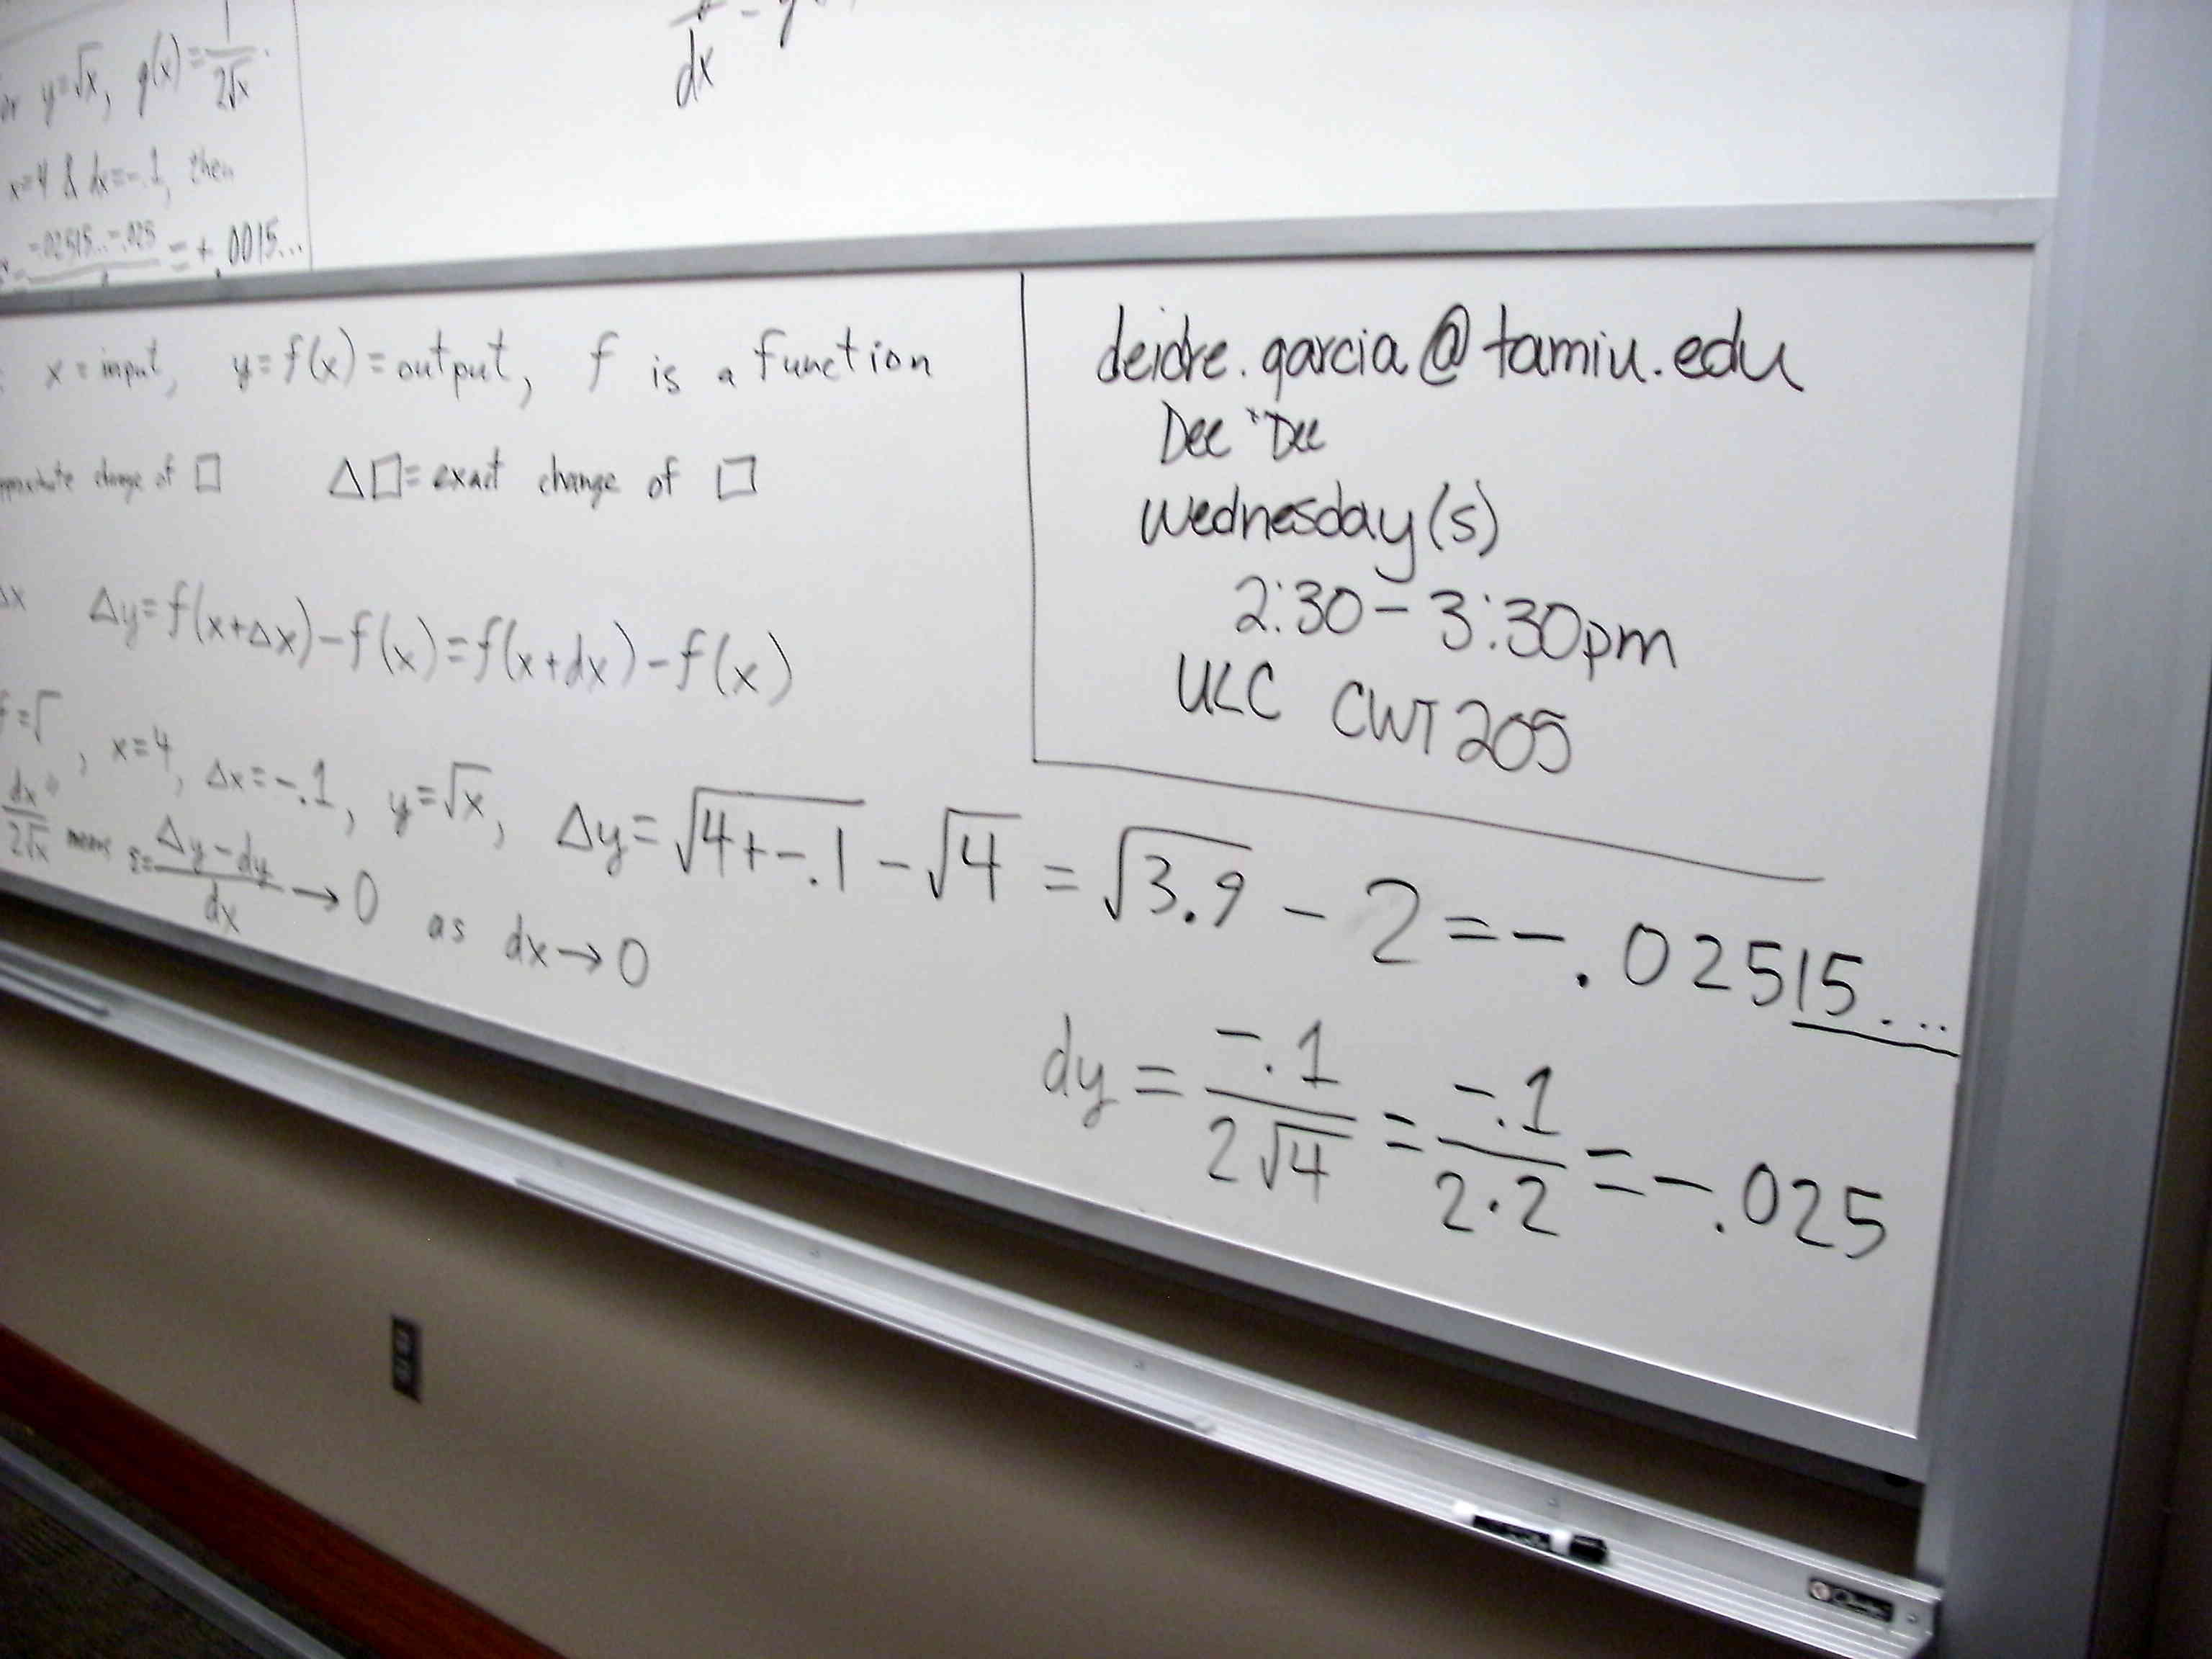 or y=√x, g(x)=1/(2√x).
x=4 & dx=-.1, then
(-.02515...--.025)/ = +.0015...
dx
x=input, y=f(x)=output, f is a function
change of □ Δ□=exact change of □
Δx Δy=f(x+Δx)-f(x)=f(x+dx)-f(x)
f=√ , x=4, Δx=-.1, y=√x, Δy=√(4+-.1) - √4 = √3.9 - 2 = -.02515...
dx/(2√x) means ε=(Δy-dy)/dx → 0 as dx→0
dy = -.1/(2√4) = -.1/(2·2) = -.025
deidre.garcia@tamiu.edu
Dee "Dee
Wednesday(s)
2:30-3:30pm
ULC CWT 205